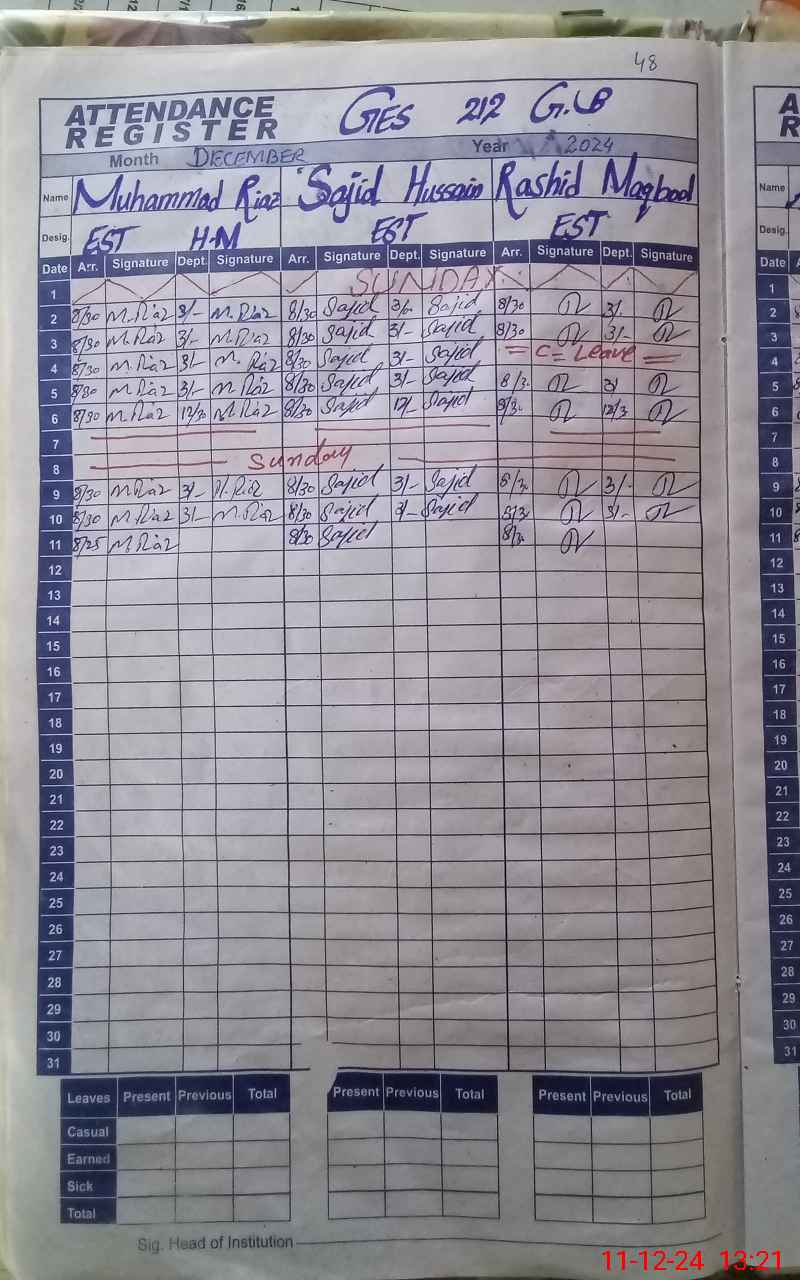 48
ATTENDANCE REGISTER GES 212 G.B
Month DECEMBER Year 2024
Name Muhammad Riaz Sajid Hussain Rashid Maqbool
Desig. EST H-M EST EST
Date Arr. Signature Dept. Signature Arr. Signature Dept. Signature Arr. Signature Dept. Signature
1 SUNDAY
2 8/30 M.Riaz 3/- M.Riaz 8/30 Sajid 3/- Sajid 8/30 3/-
3 8/30 M.Riaz 3/- M.Riaz 8/30 Sajid 3/- Sajid 8/30 3/-
4 8/30 M.Riaz 3/- M.Riaz 8/30 Sajid 3/- Sajid = C = Leave =
5 8/30 M.Riaz 3/- M.Riaz 8/30 Sajid 3/- Sajid 8/3. 3/
6 8/30 M.Riaz 12/30 M.Riaz 8/30 Sajid 12/- Sajid 8/3. 12/3
7
8 Sunday
9 8/30 M.Riaz 3/- M.Riaz 8/30 Sajid 3/- Sajid 8/3. 3/-
10 8/30 M.Riaz 3/- M.Riaz 8/30 Sajid 3/- Sajid 8/3. 3/-
11 8/25 M.Riaz 8/30 Sajid 8/3.
12
13
14
15
16
17
18
19
20
21
22
23
24
25
26
27
28
29
30
31
Leaves Present Previous Total Present Previous Total Present Previous Total
Casual
Earned
Sick
Total
Sig. Head of Institution
11-12-24 13:21